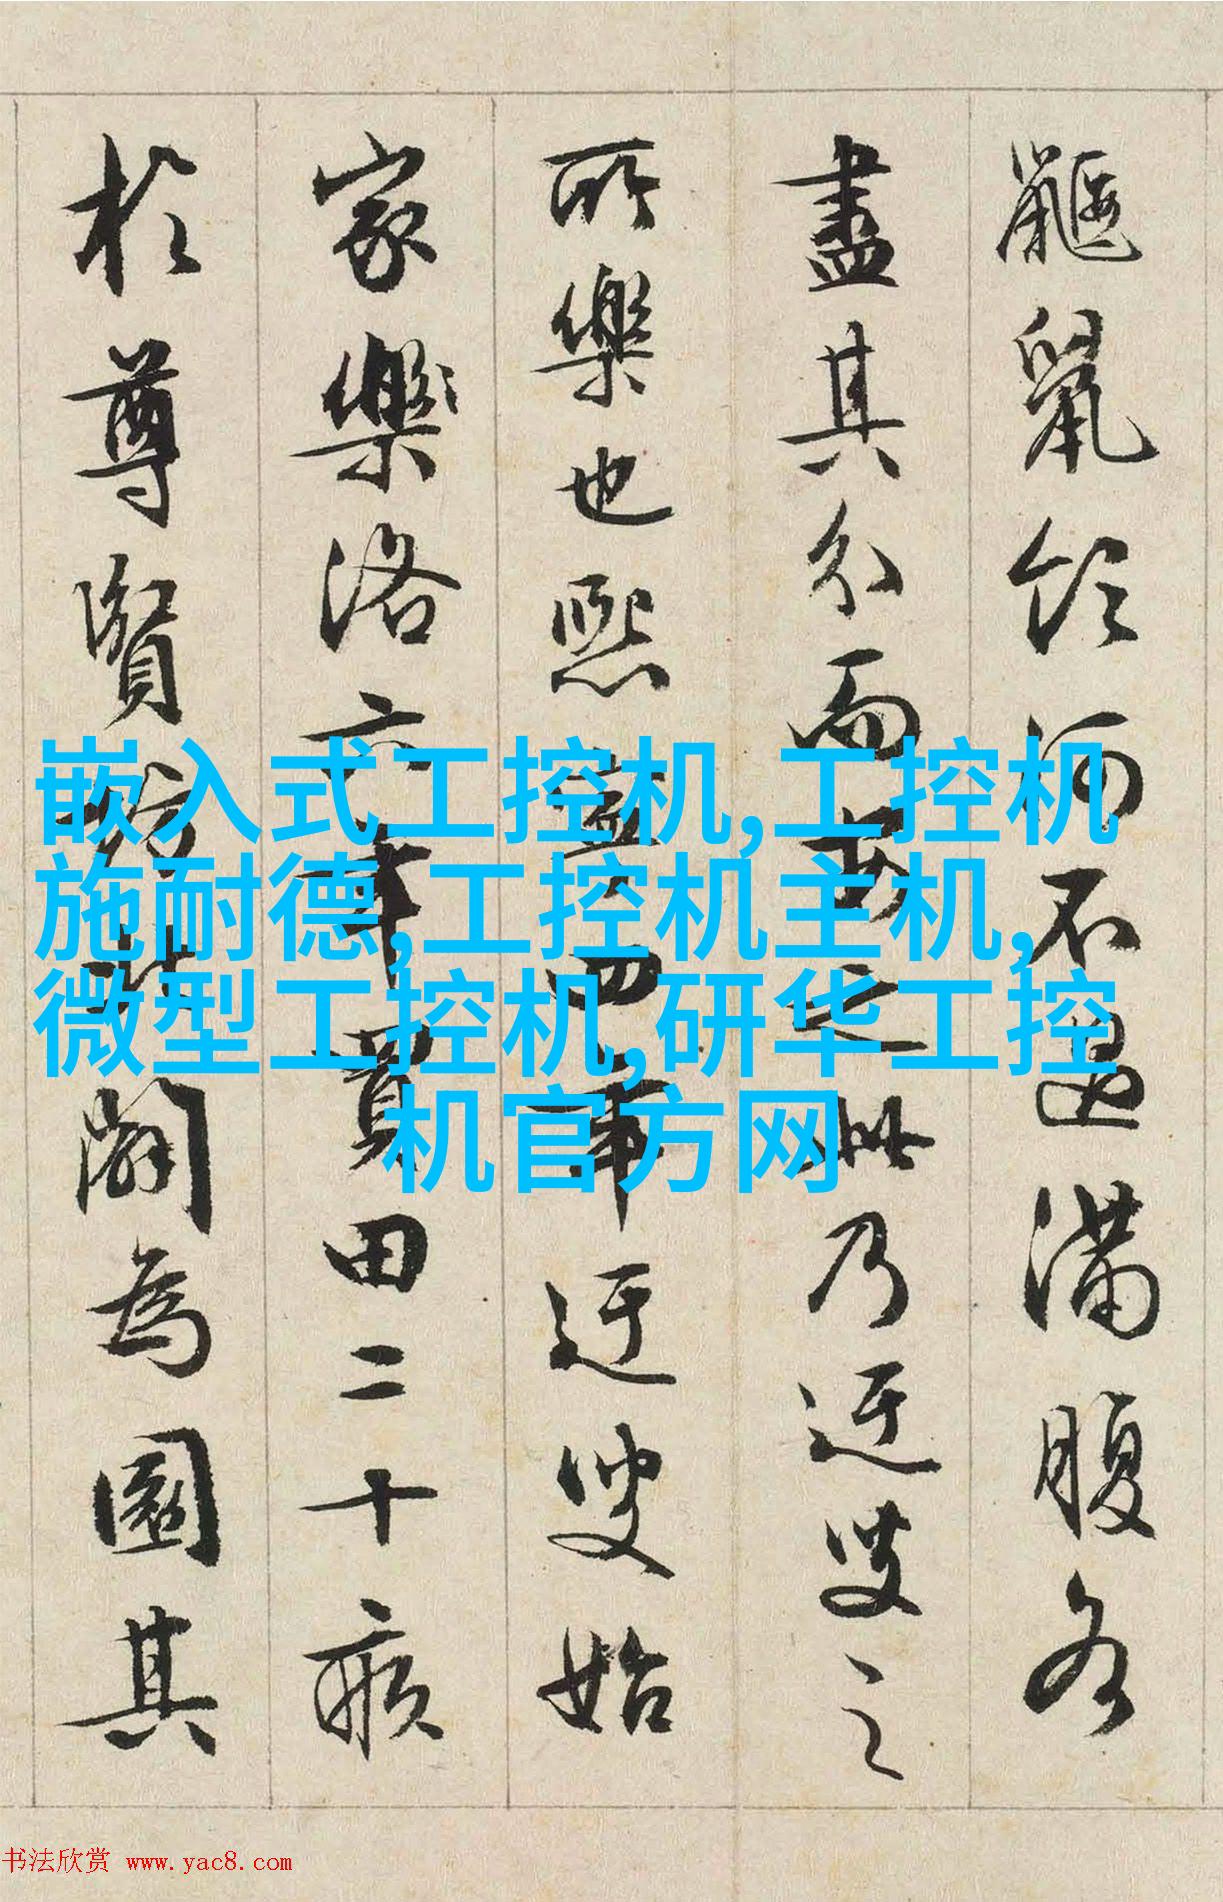 鼴鼠飲河不過滿腹各
盡其分而安之此乃迂叟之
所樂也熙寧四年迂叟始
家樂洛六年買田二十畝
於尊賢坊北闢為園其
嵌入式工控机,工控机
施耐德,工控机主机,
微型工控机,研华工控
机官方网
书法欣赏 www.yac8.com